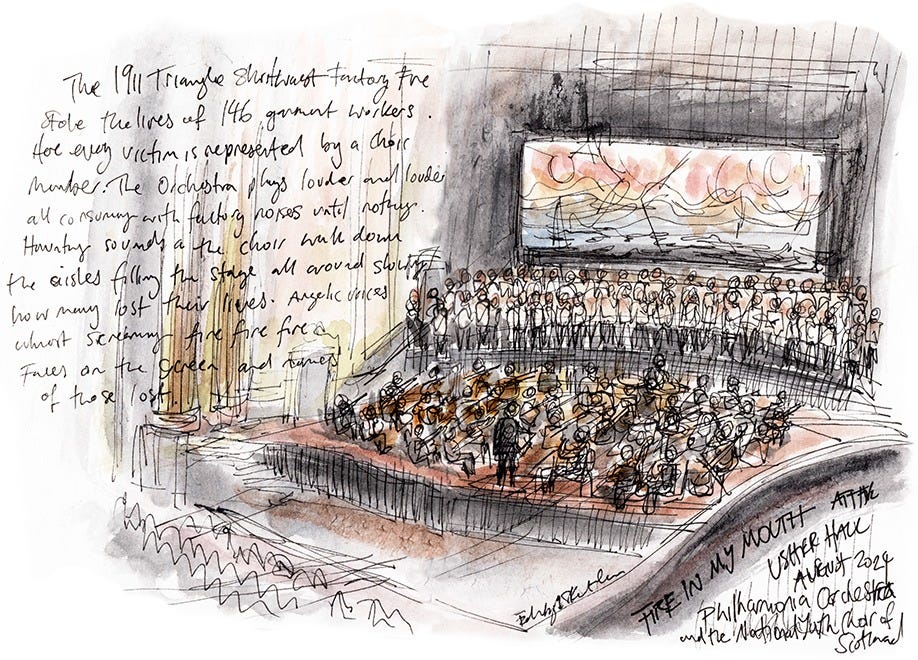 The 1911 Triangle Shirtwaist Factory Fire
stole the lives of 146 garment workers.
Here every victim is represented by a choir
member. The Orchestra plays louder and louder
all consuming with factory noises until nothing.
Haunting sounds as the choir walk down
the aisles filling the stage all around showing
how many lost their lives. Angelic voices
almost screaming fire fire fire
Faces on the screen and names
of those lost.
FIRE IN MY MOUTH AT THE
USHER HALL
AUGUST 2024
Philharmonia Orchestra
and the National Youth Choir of
Scotland